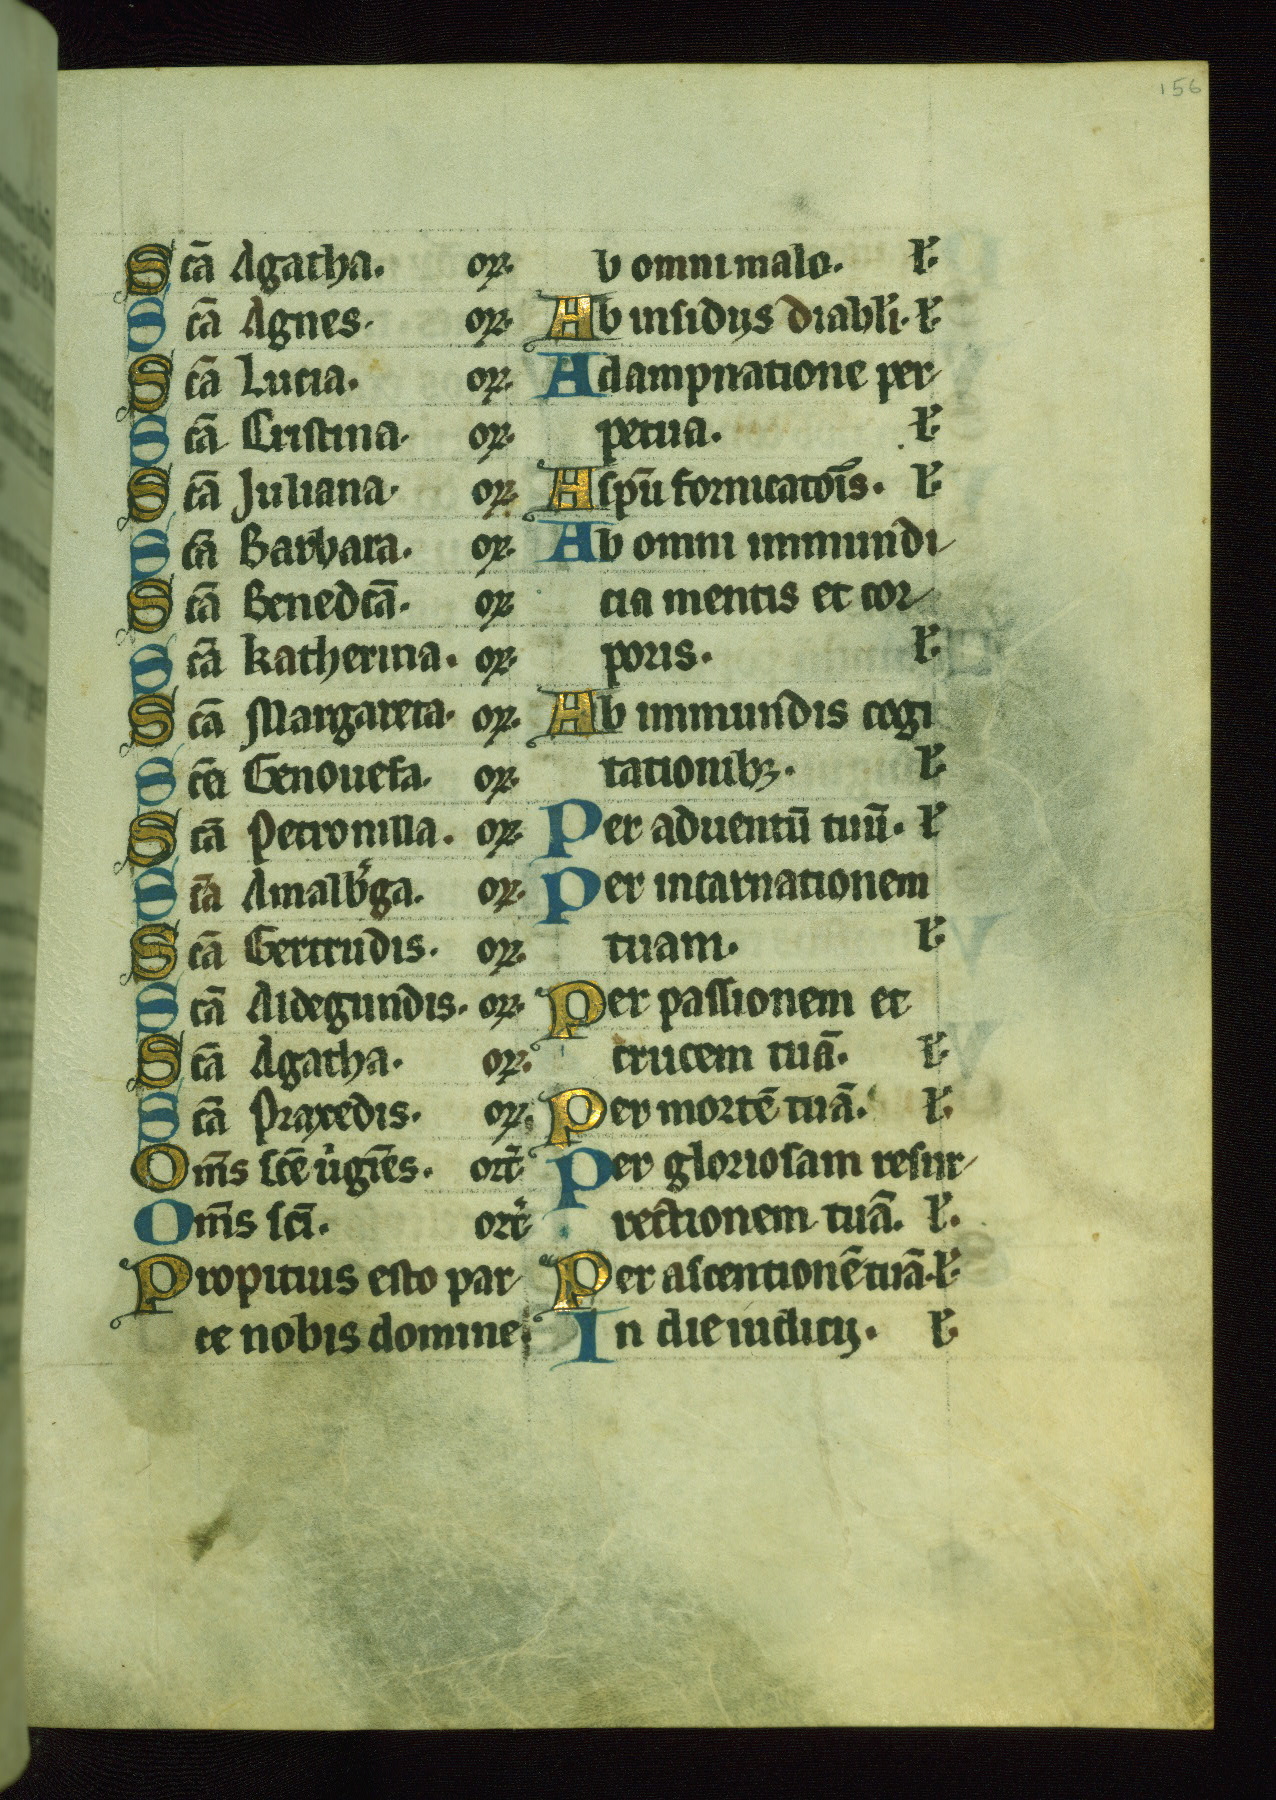 156
Scā Agatha. oꝝ.
Scā Agnes. oꝝ.
Scā Lucia. oꝝ.
Scā Cristina. oꝝ.
Scā Juliana. oꝝ.
Scā Barbara. oꝝ.
Scā Benedcā. oꝝ.
Scā Katherina. oꝝ.
Scā Margareta. oꝝ.
Scā Genouefa. oꝝ.
Scā Petronilla. oꝝ.
Scā Amalb'ga. oꝝ.
Scā Gertrudis. oꝝ.
Scā Aldegundis. oꝝ.
Scā Agatha. oꝝ.
Scā Praxedis. oꝝ.
Om̄s scē u'gīēs. orꝛ̄
Om̄s scī. orꝛ̄
Propitius esto par
ce nobis domine.
b omni malo. l'.
Ab insidijs diabli. l'.
A dampnatione per
petua. l'.
A spū fornicatōis. l'.
Ab omni immundi
cia mentis et cor
poris. l'.
Ab immundis cogi
tationibꝫ. l'.
Per aduentū tuū. l'
Per incarnationem
tuam. l'.
Per passionem et
crucem tuā. l'.
Per mortē tuā. l'.
Per gloriosam resur
rectionem tuā. l'.
Per ascentionē tuā. l'.
In die iudicij. l'.